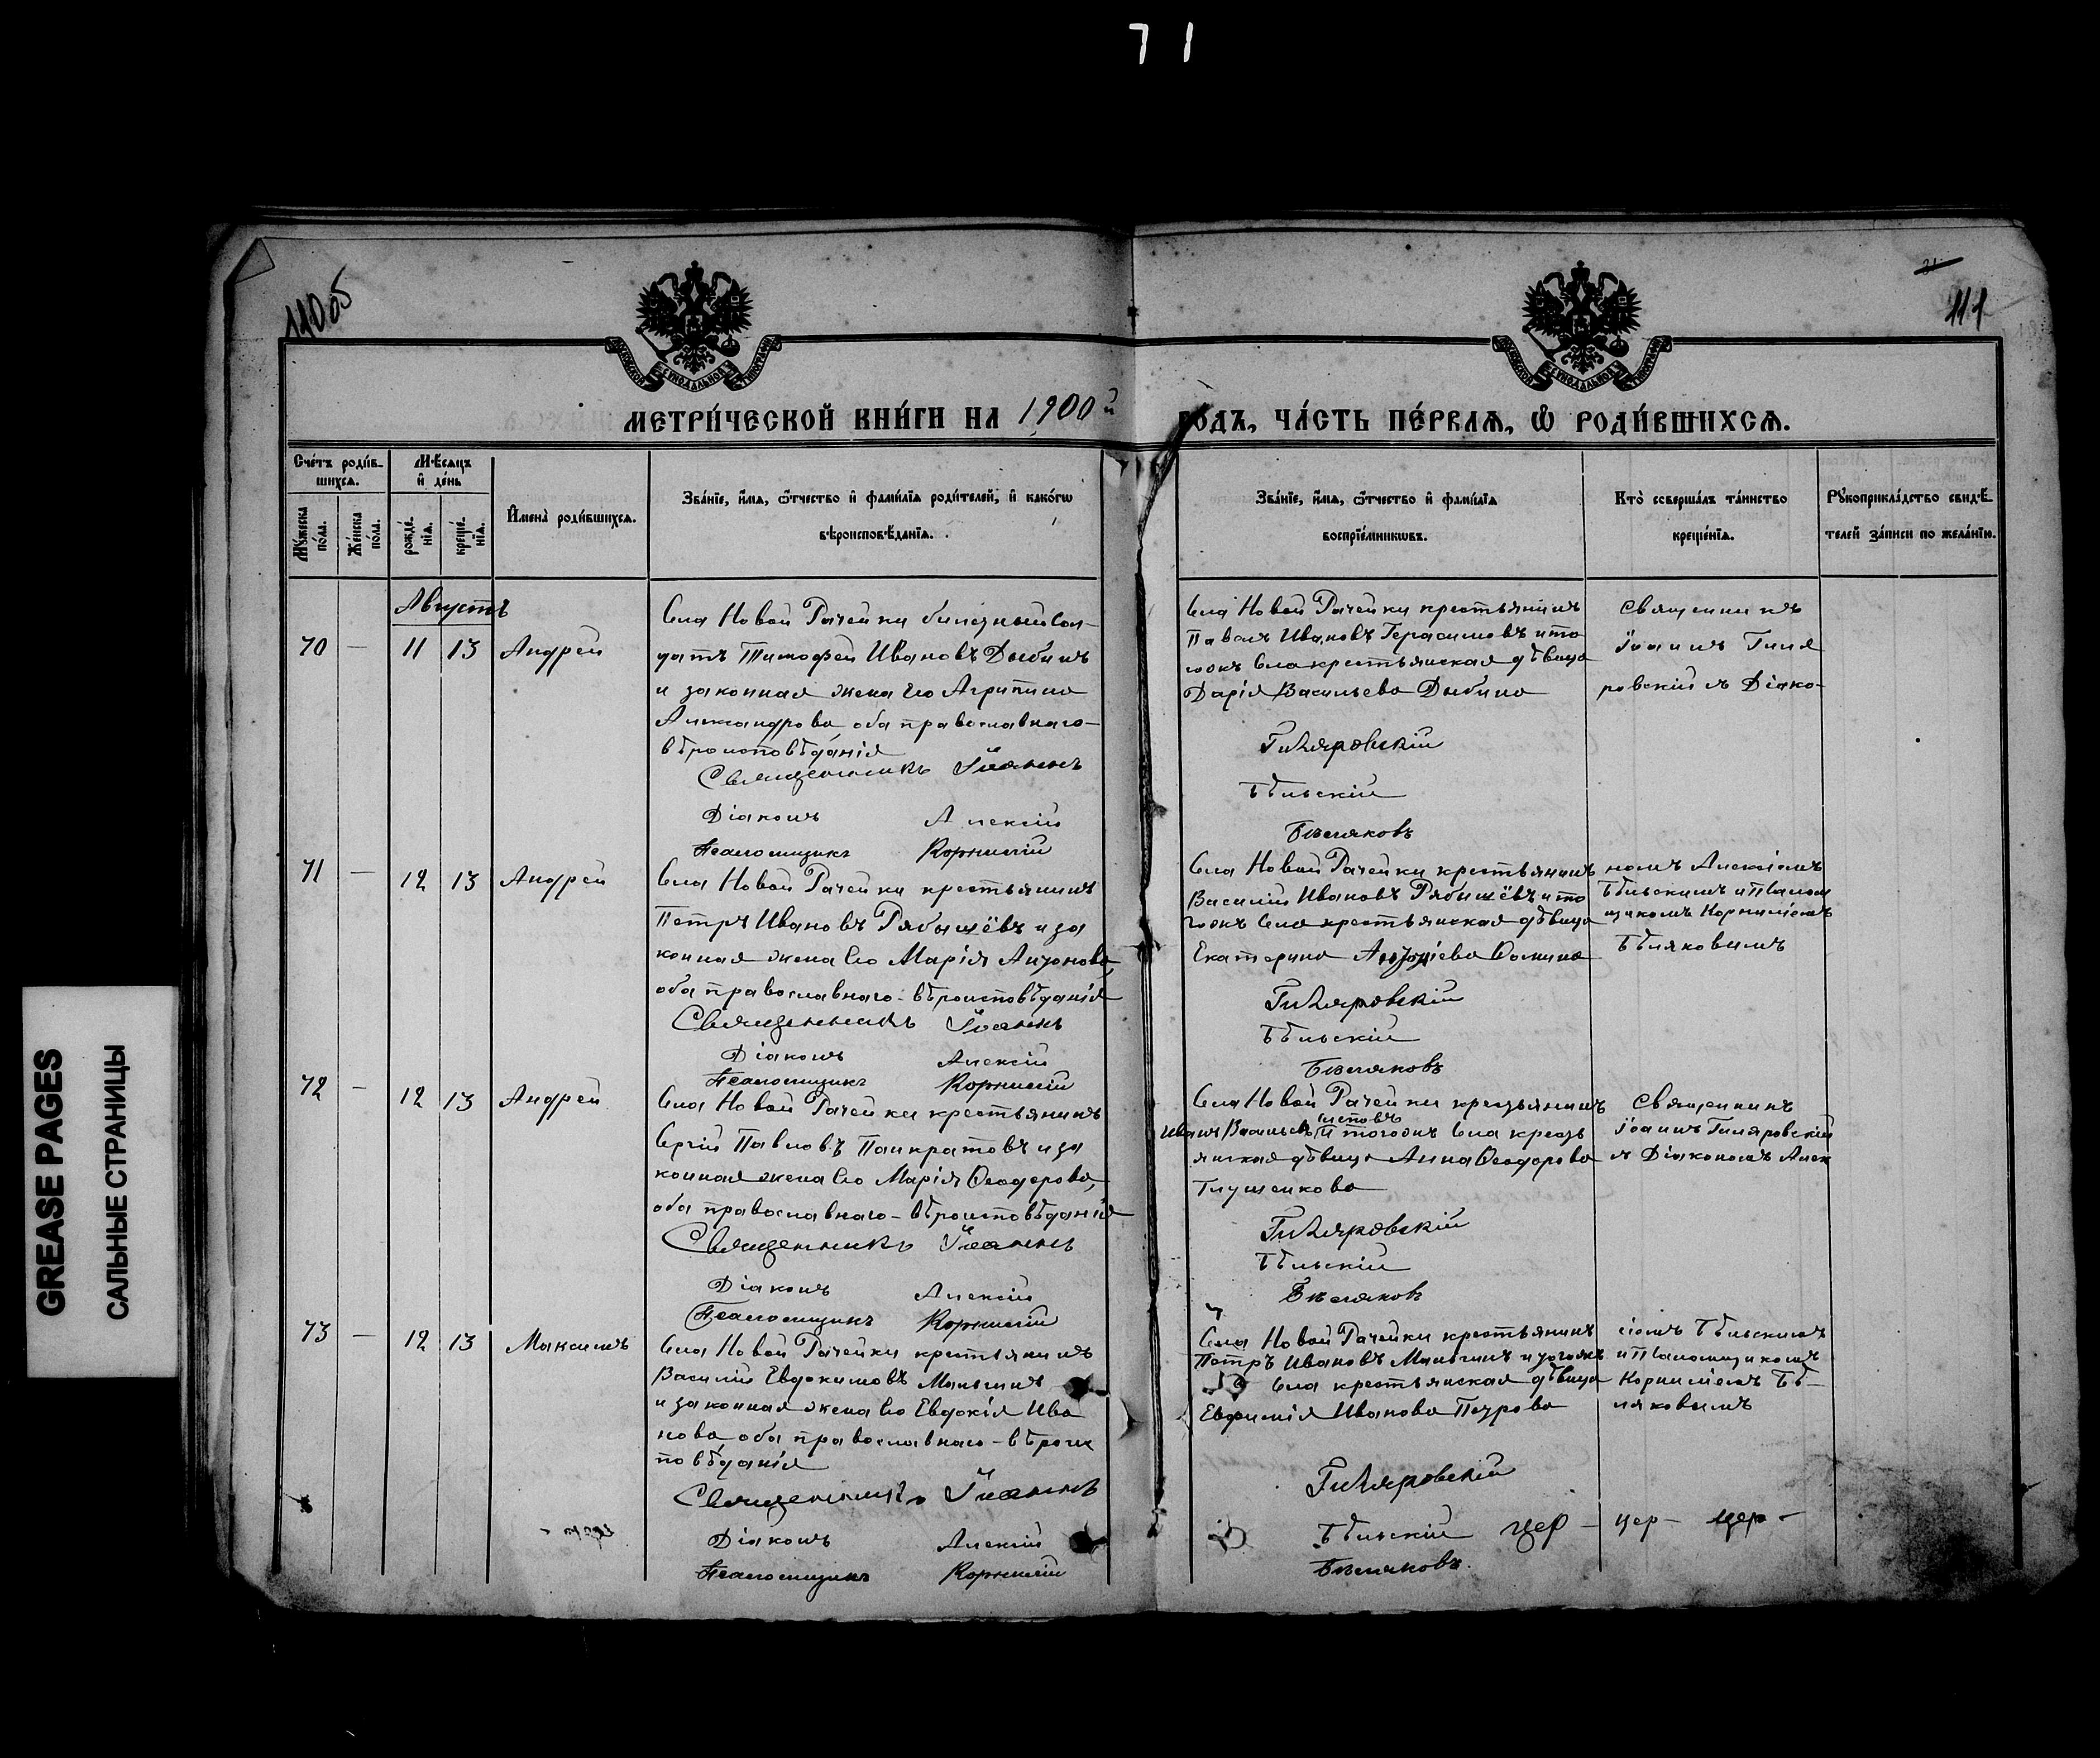 71
110об
111
МЕТРИ́ЧЕСКОЙ КНИ́ГИ НА 1900й
ГОДЪ, ЧА́СТЬ ПЕ́РВАѦ, Ѡ РОДИ́ВШИХСѦ.
Сче́тъ роди́в-
шихсѧ.
Мѣсѧцъ
и де́нь
Мꙋ́жеска
по́ла.
Же́нска
по́ла.
рожде́-
нїѧ.
креще́-
нїѧ.
И҆мена̀ роди́вшихсѧ.
Зва́нїе, и҆́мѧ, ѻ҆́тчество и҆ фами́лїѧ роди́телей, и҆ како́гѡ
вѣроисповѣ́данїѧ.
Зва́нїе, и҆́мѧ, ѻ҆́тчество и҆ фами́лїѧ
воспрїе́мникѡвъ.
Кто̀ соверша́лъ та́инство
креще́нїѧ.
Рꙋкоприкла́дство свидѣ́-
телей за́писи по жела́нїю.
Августъ
70 — 11 13 Андрей
Села Новой Рачейки билетный сол-
датъ Тимофей Ивановъ Дыбинъ
и законная жена его Агрипина
Александрова оба православнаго-
вѣроисповѣданія
Священникъ Іоаннъ
Діаконъ Алексій
Псаломщикъ Корнилій
Села Новой Рачейки крестьянинъ
Павелъ Ивановъ Герасимовъ и то
гожъ села крестьянская дѣвица
Дарія Васильева Дыбина
Гиляровскій
Бѣльскій
Бѣляковъ
Священникъ
Іоаннъ Гиля
ровскій съ Діако-
71 — 12 13 Андрей
Села Новой Рачейки крестьянинъ
Петръ Ивановъ Рябышёвъ и за
конная жена его Марія Антонова,
оба православнаго-вѣроисповѣданія
Священникъ Іоаннъ
Діаконъ Алексій
Псаломщикъ Корнилій
Села Новой Рачейки крестьянинъ
Василій Ивановъ Рябышёвъ и то
гожъ села крестьянская дѣвица
Екатерина Ѳомина
Гиляровскій
Бѣльскій
Бѣляковъ
номъ Алексіемъ
Бѣльскимъ и Псалом
щикомъ Корниліемъ
Бѣляковымъ
72 — 12 13 Андрей
Села Новой Рачейки крестьянинъ
Сергій Павловъ Панкратовъ и за
конная жена его Марія Ѳеодорова,
оба православнаго-вѣроисповѣданія
Священникъ Іоаннъ
Діаконъ Алексій
Псаломщикъ Корнилій
Села Новой Рачейки крестьянинъ
Иванъ Васильевъ и тогожъ села кресть
янская дѣвица Анна Ѳеодорова
Глушенкова
Гиляровскій
Бѣльскій
Бѣляковъ
Священникъ
Іоаннъ Гиляровскій
съ Діакономъ Алек
73 — 12 13 Максимъ
Села Новой Рачейки крестьянинъ
Василій Евдокимовъ Малыгинъ
и законная жена его Евдокія Ива
нова оба православнаго-вѣроис
повѣданія
Священникъ Іоаннъ
Діаконъ Алексій
Псаломщикъ Корнилій
Села Новой Рачейки крестьянинъ
Петръ Ивановъ Малыгинъ и тогожъ
села крестьянская дѣвица
Евфимія Иванова Петрова
Гиляровскій
Бѣльскій цер-
Бѣляковъ
сіемъ Бѣльскимъ
и Псаломщикомъ
Корниліемъ Бѣ-
ляковымъ
цер- цер-
GREASE PAGES
САЛЬНЫЕ СТРАНИЦЫ